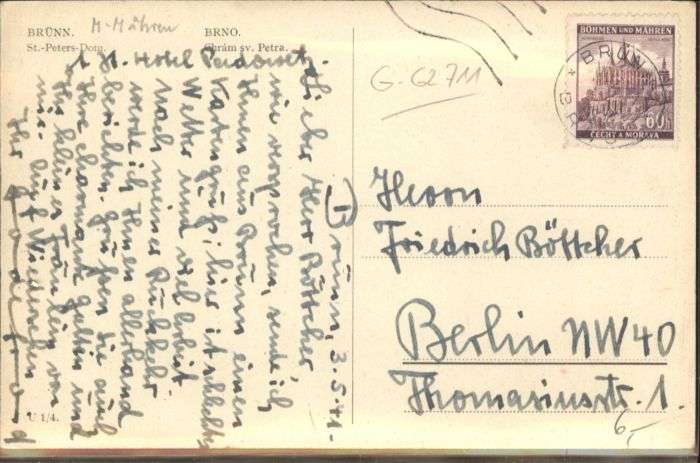 BRÜNN.
St.-Peters-Dom.
M-Mähren
BRNO.
Chrám sv. Petra.
z. Zt. Hotel
Brünn, 3.5.41.
Lieber Herr Böttcher,
wie versprochen, sende ich
Ihnen aus Brünn einen
Kartengruß; hier ist schlechtes
Wetter und viel Arbeit.
Nach meiner Rückkehr
werde ich Ihnen allerhand
berichten. Grüßen Sie auch
Ihre charmante Gattin und
Ihr kleines Fräulein von
mir. Auf Wiedersehen
Ihr
U 1/4.
G-G2711
BÖHMEN UND MÄHREN
60
ČECHY A MORAVA
BRÜNN
BRNO
Herrn
Friedrich Böttcher
Berlin NW 40
Thomasiusstr. 1.
6,–